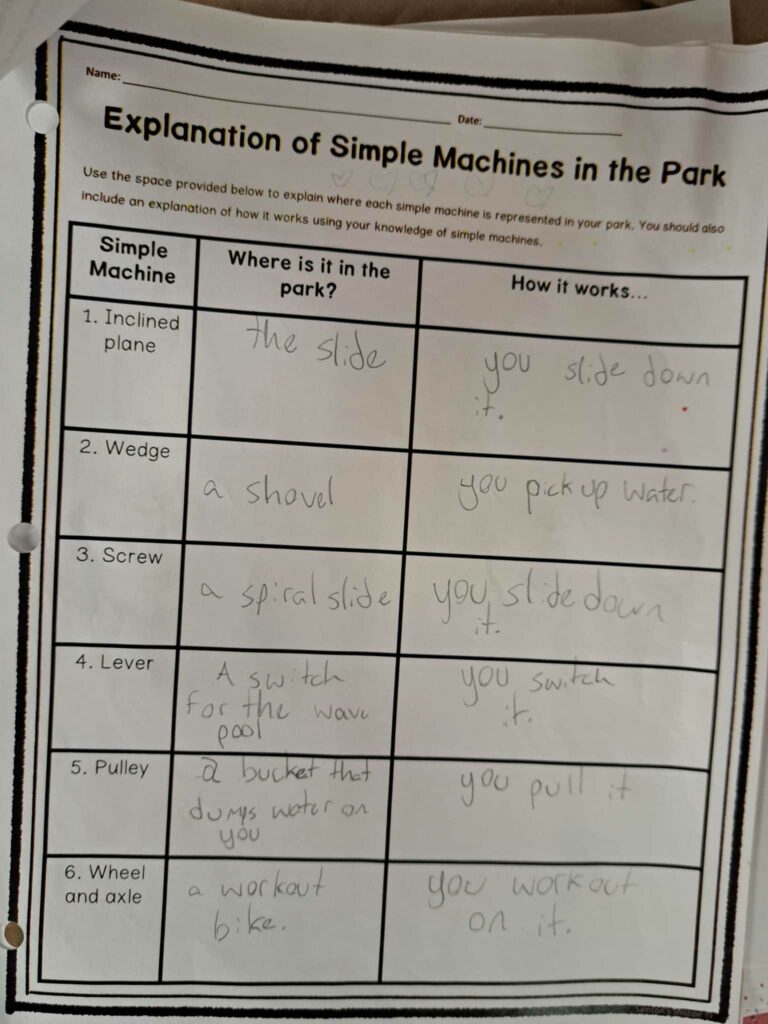 Name:
Date:
Explanation of Simple Machines in the Park
Use the space provided below to explain where each simple machine is represented in your park. You should also
include an explanation of how it works using your knowledge of simple machines.
Simple
Machine
Where is it in the
park?
How it works...
1. Inclined
plane
the slide
you slide down
it.
2. Wedge
a shovel
you pick up water.
3. Screw
a spiral slide
you slide down
it.
4. Lever
A switch
for the wave
pool
you switch
it.
5. Pulley
a bucket that
dumps water on
you
you pull it
6. Wheel
and axle
a workout
bike.
you workout
on it.